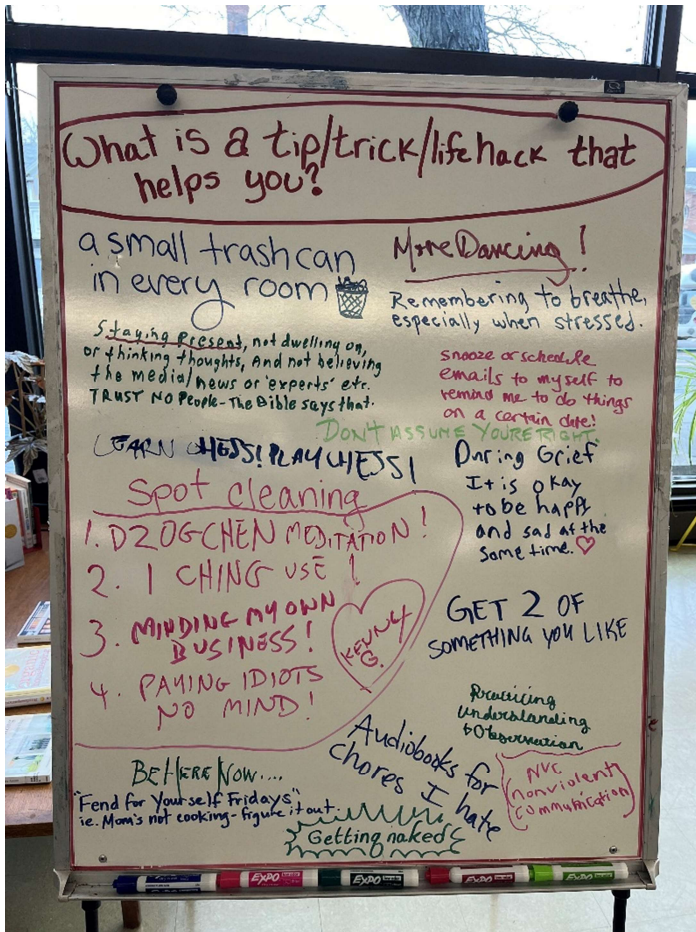 What is a tip/trick/lifehack that
helps you?
a small trash can
in every room
More Dancing!
Remembering to breathe,
especially when stressed.
Staying Present, not dwelling on,
or thinking thoughts, And not believing
the media/news or 'experts' etc.
TRUST NO People - The Bible says that.
Snooze or schedule
emails to myself to
remind me to do things
on a certain date!
DON'T ASSUME YOU'RE RIGHT
LEARN CHESS! PLAY CHESS!
During Grief
It is okay
to be happy
and sad at the
same time.
Spot cleaning
1. DZOGCHEN MEDITATION!
2. I CHING USE!
3. MINDING MY OWN
BUSINESS!
4. PAYING IDIOTS
NO MIND!
G.
GET 2 OF
SOMETHING YOU LIKE
Practicing
Understanding
& Observation
NVC
(nonviolent
communication)
Audiobooks for
chores I hate
BE HERE NOW....
"Fend for Yourself Fridays"
ie. Mom's not cooking - figure it out.
Getting naked
EXPO
EXPO
EXPO
EXPO